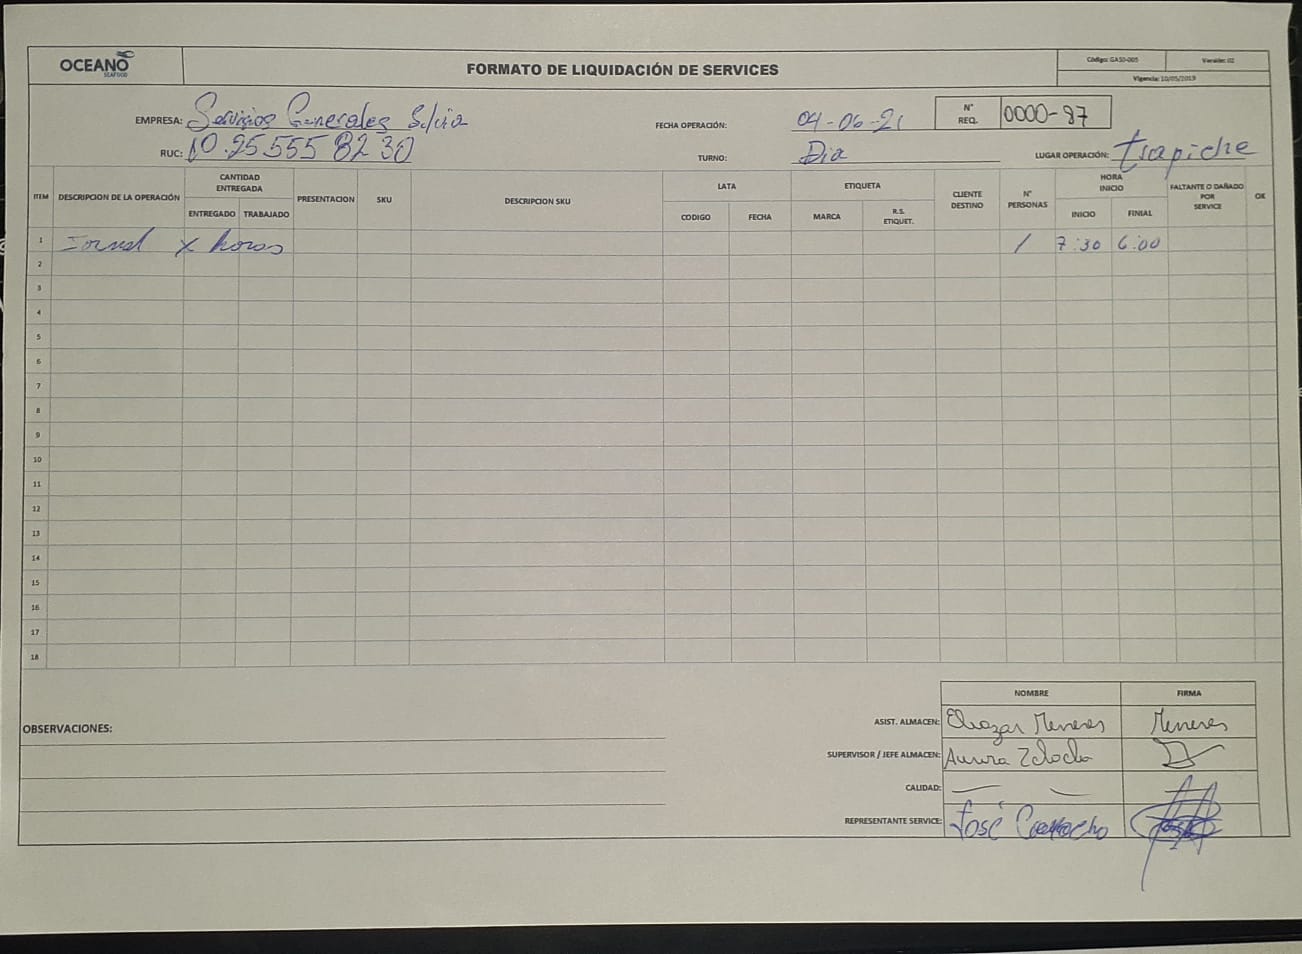 OCEANO
SEAFOOD
FORMATO DE LIQUIDACIÓN DE SERVICES
Código: GASO-005 Versión: 02
Vigencia: 10/05/2019
EMPRESA: Servicios Generales Silvia
FECHA OPERACIÓN: 04-06-21
N° REQ. 0000-87
RUC: 10.25555 82 30
TURNO: Dia
LUGAR OPERACIÓN: trapiche
ITEM DESCRIPCION DE LA OPERACIÓN CANTIDAD ENTREGADA PRESENTACION SKU DESCRIPCION SKU LATA ETIQUETA CLIENTE DESTINO N° PERSONAS HORA INICIO FALTANTE O DAÑADO POR SERVICE OK
ENTREGADO TRABAJADO CODIGO FECHA MARCA R.S. ETIQUET. INICIO FINIAL
1 Jornal x horas 1 7:30 6:00
2
3
4
5
6
7
8
9
10
11
12
13
14
15
16
17
18
OBSERVACIONES:
NOMBRE FIRMA
ASIST. ALMACEN: Eliazar Meneses Meneses
SUPERVISOR / JEFE ALMACEN: Aurora
CALIDAD:
REPRESENTANTE SERVICE: José Camacho